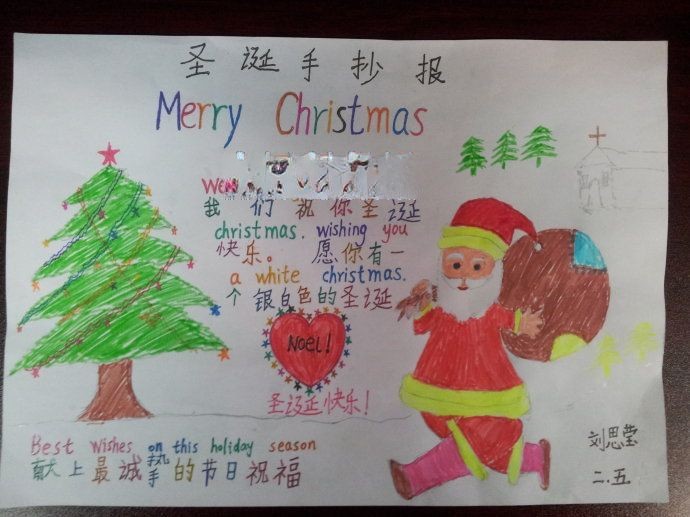 圣诞手抄报
Merry Christmas
我们祝你圣诞
christmas. wishing you
快乐。愿你有一
a white christmas.
个银白色的圣诞
Noel!
圣诞快乐!
Best wishes on this holiday season
献上最诚挚的节日祝福
刘思莹
二.五